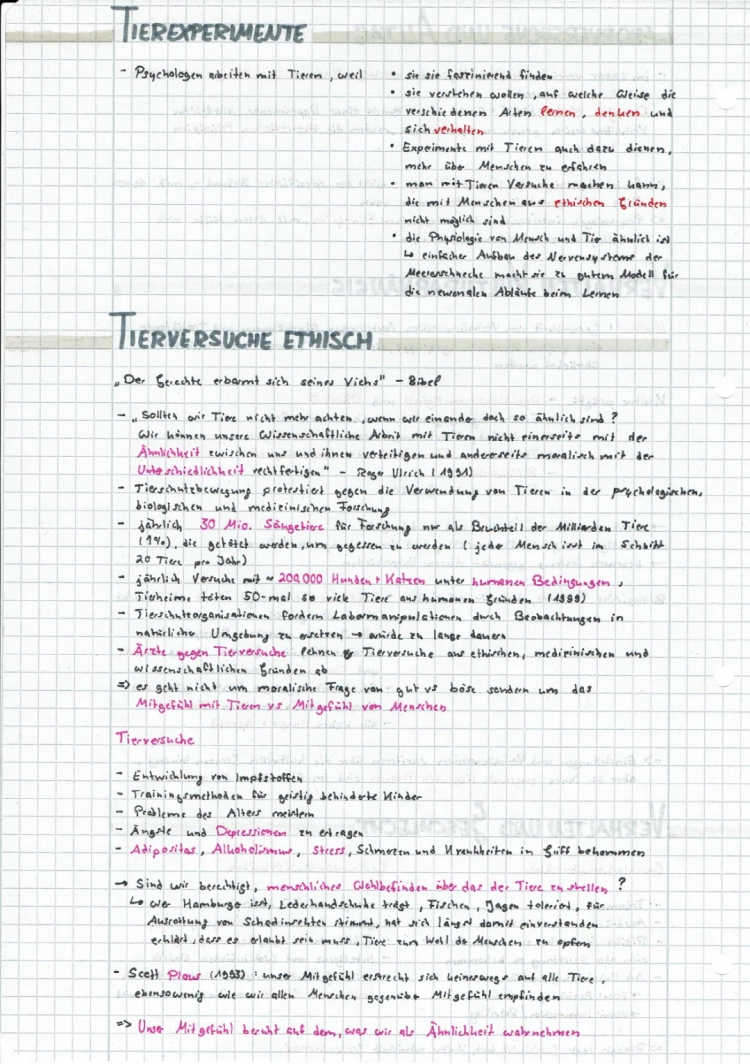 TIEREXPERIMENTE
- Psychologen arbeiten mit Tieren, weil • sie sie faszinierend finden
• sie verstehen wollen, auf welche Weise die
verschiedenen Arten lernen, denken und
sich verhalten
• Experimente mit Tieren auch dazu dienen,
mehr über Menschen zu erfahren
• man mit Tieren Versuche machen kann,
die mit Menschen aus ethischen Gründen
nicht möglich sind
• die Physiologie von Mensch und Tier ähnlich ist
↳ einfacher Aufbau des Nervensystems der
Meeresschnecke macht sie zu gutem Modell für
die neuronalen Abläufe beim Lernen
TIERVERSUCHE ETHISCH
„Der Gerechte erbarmt sich seines Viehs" - Bibel
- „Sollten wir Tiere nicht mehr achten, wenn wir einander doch so ähnlich sind?
Wir können unsere wissenschaftliche Arbeit mit Tieren nicht einerseits mit der
Ähnlichkeit zwischen uns und ihnen verteitigen und andererseits moralisch mit der
Unterschiedlichkeit rechtfertigen" - Roger Ulrich (1991)
- Tierschutzbewegung protestiert gegen die Verwendung von Tieren in der psychologischen,
biologischen und medizinischen Forschung
- jährlich 30 Mio. Säugetiere für Forschung nur als Bruchteil der Milliarden Tiere
(1%), die getötet werden, um gegessen zu werden (jeder Mensch isst im Schnitt
20 Tiere pro Jahr)
- jährlich Versuche mit ≈ 200.000 Hunden + Katzen unter humanen Bedingungen,
Tierheime töten 50-mal so viele Tiere aus humanen Gründen (1999)
- Tierschutzorganisationen fordern Labormanipulationen durch Beobachtungen in
natürlicher Umgebung zu ersetzen → würde zu lange dauern
- Ärzte gegen Tierversuche lehnen Tierversuche aus ethischen, medizinischen und
wissenschaftlichen Gründen ab
⇒ es geht nicht um moralische Frage von gut vs böse sondern um das
Mitgefühl mit Tieren vs Mitgefühl von Menschen
Tierversuche
- Entwicklung von Impfstoffen
- Trainingsmethoden für geistig behinderte Kinder
- Probleme des Alters meistern
- Ängste und Depressionen zu ertragen
- Adipositas, Alkoholismus, Stress, Schmerzen und Krankheiten in Griff bekommen
→ Sind wir berechtigt, menschliches Wohlbefinden über das der Tiere zu stellen?
↳ wer Hamburger isst, Lederhandschuhe trägt, Fischen, Jagen toleriert, für
Ausrottung von Schadinsekten stimmt, hat sich längst damit einverstanden
erklärt, dass es erlaubt sein muss, Tiere zum Wohl des Menschen zu opfern
- Scott Plous (1993): unser Mitgefühl erstreckt sich keineswegs auf alle Tiere,
ebensowenig wie wir allen Menschen gegenüber Mitgefühl empfinden
⇒ Unser Mitgefühl beruht auf dem, was wir als Ähnlichkeit wahrnehmen